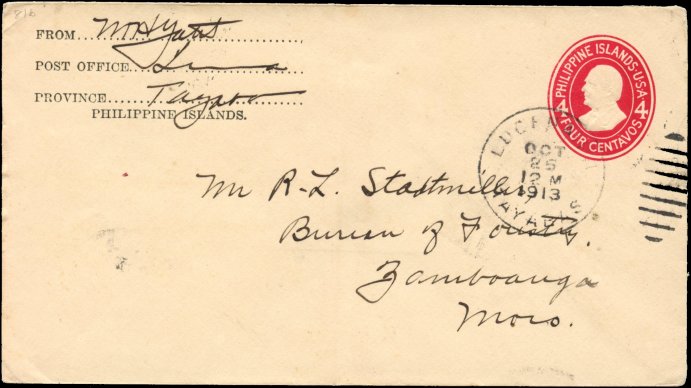 816
FROM
POST OFFICE
PROVINCE Tayabas
PHILIPPINE ISLANDS.
PHILIPPINE ISLANDS·U·S·A
4 4
FOUR CENTAVOS
LUCENA
OCT
25
12 M
1913
TAYABAS
Mr R. L. Stadtmiller,
Bureau of Forestry.
Zamboanga
Moro.